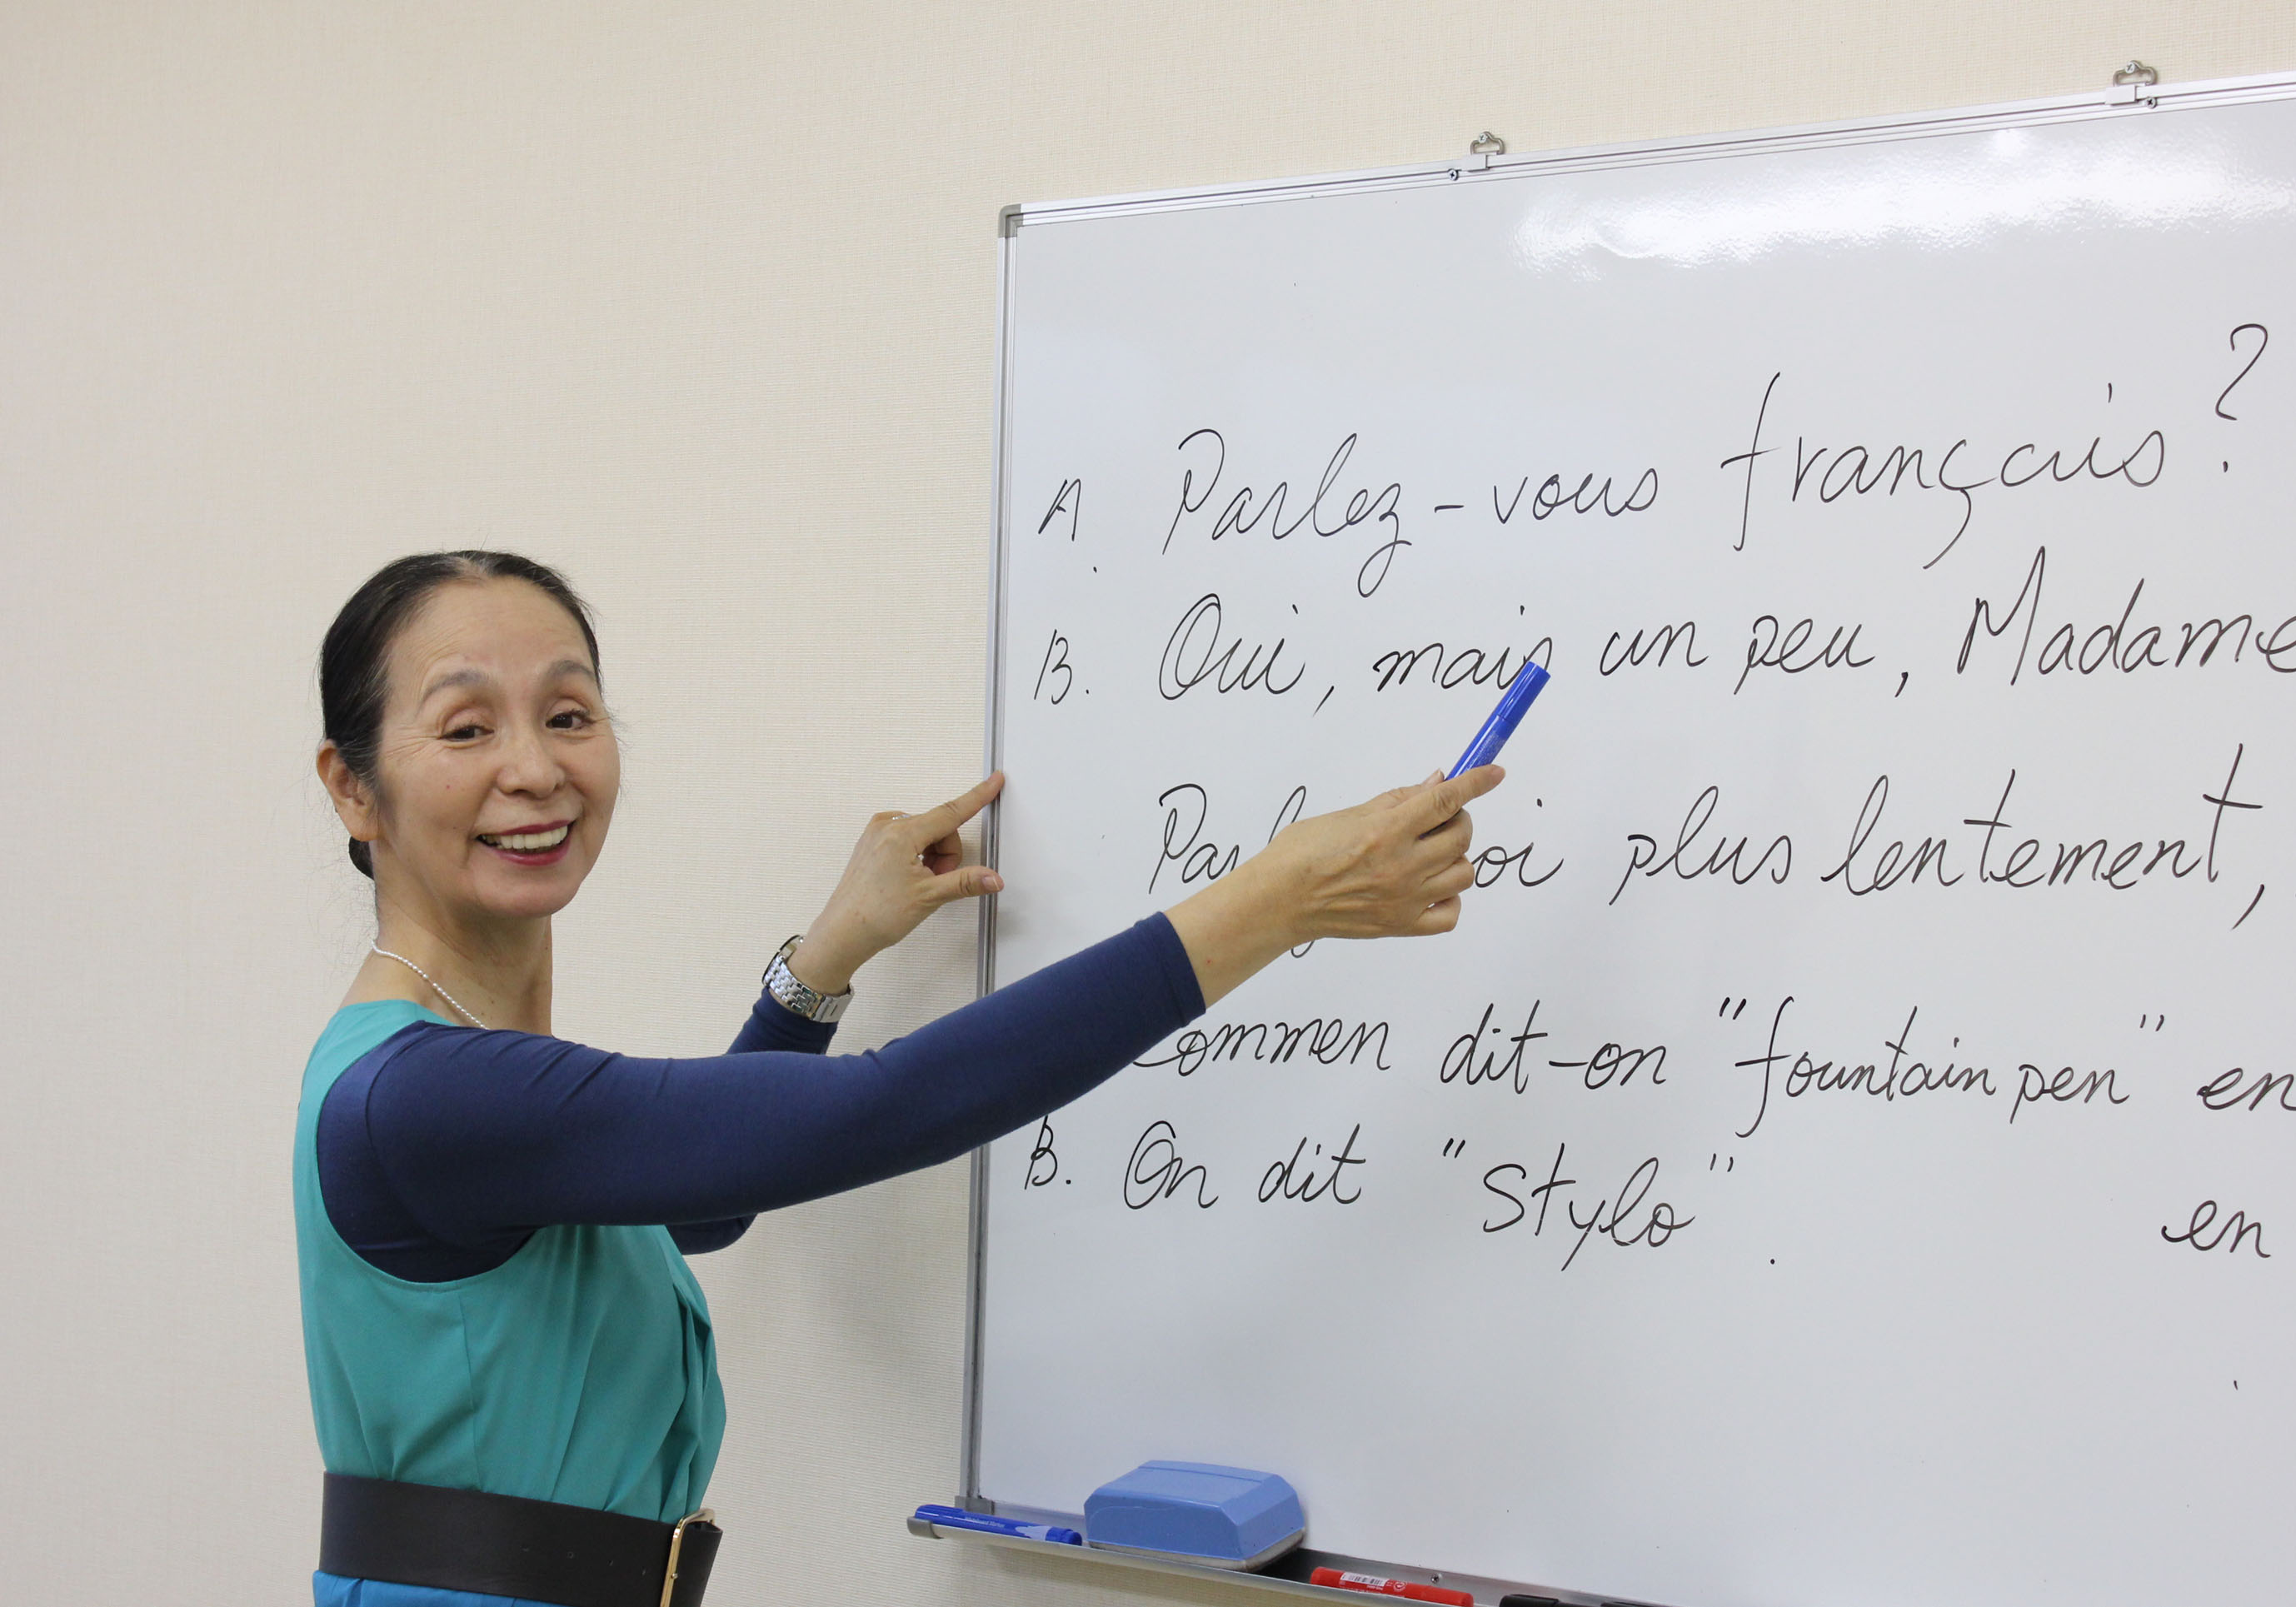 A. Parlez-vous français?
B. Oui, mais un peu, Madame
plus lentement,
Commen dit-on "fountain pen" en
B. On dit "Stylo".
en